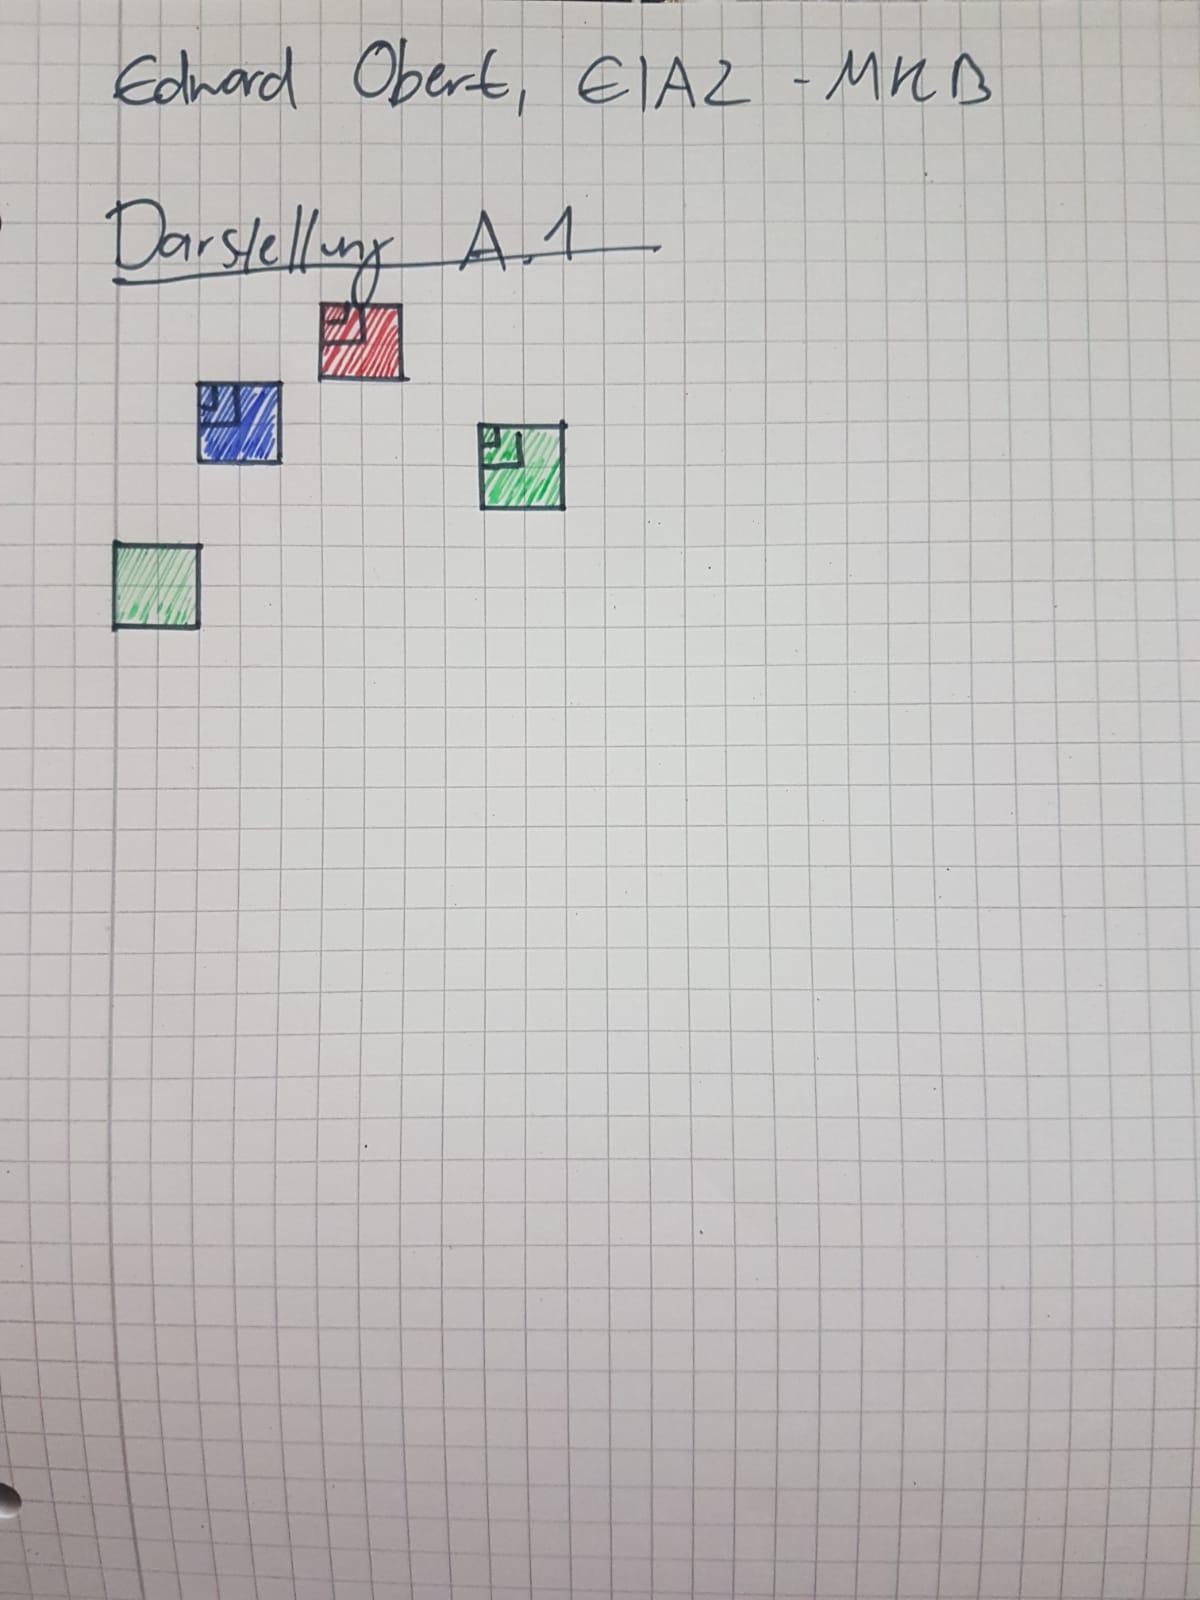 Edward Obert, EIA2 - MKB
Darstellung A.1